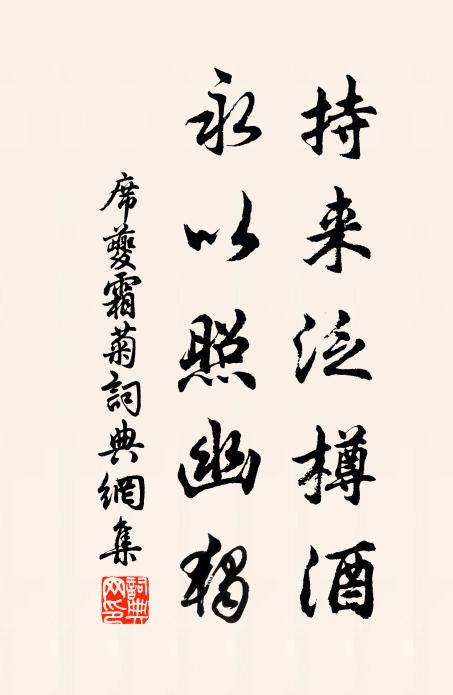 持来泛樽酒
永以照幽独
席夔霜菊詞典網集
詞典网印